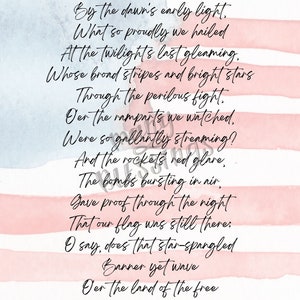 By the dawn's early light,
What so proudly we hailed
At the twilight's last gleaming,
Whose broad stripes and bright stars
Through the perilous fight,
O'er the ramparts we watched,
Were so gallantly streaming?
And the rocket's red glare,
The bombs bursting in air,
Gave proof through the night
That our flag was still there:
O say, does that star-spangled
Banner yet wave
O'er the land of the free